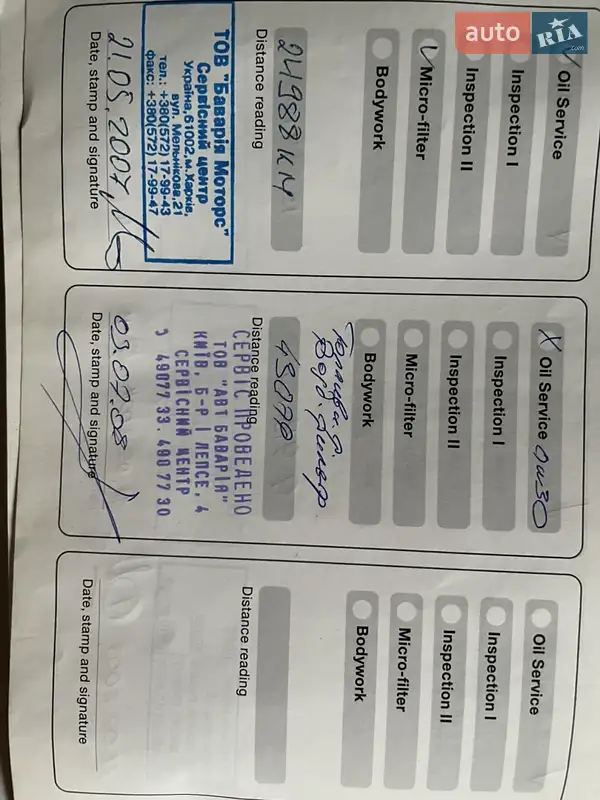 auto
RIA
Oil Service
Inspection I
Inspection II
Micro-filter
Bodywork
Distance reading
24988 км
ТОВ "Баварія Моторс"
Сервісний центр
Україна,61002,м.Харків,
вул. Мельнікова,21
тел.: +380(572)17-99-43
факс: +380(572)17-99-47
21.05.2007
Date, stamp and signature
X Oil Service 0w30
Inspection I
Inspection II
Micro-filter
Bodywork
Distance reading
СЕРВІС ПРОВЕДЕНО
ТОВ "АВТ БАВАРІЯ"
КИЇВ, Б-Р І ЛЕПСЕ, 4
СЕРВІСНИЙ ЦЕНТР
490 77 33, 490 77 30
Date, stamp and signature
Oil Service
Inspection I
Inspection II
Micro-filter
Bodywork
Distance reading
Date, stamp and signature